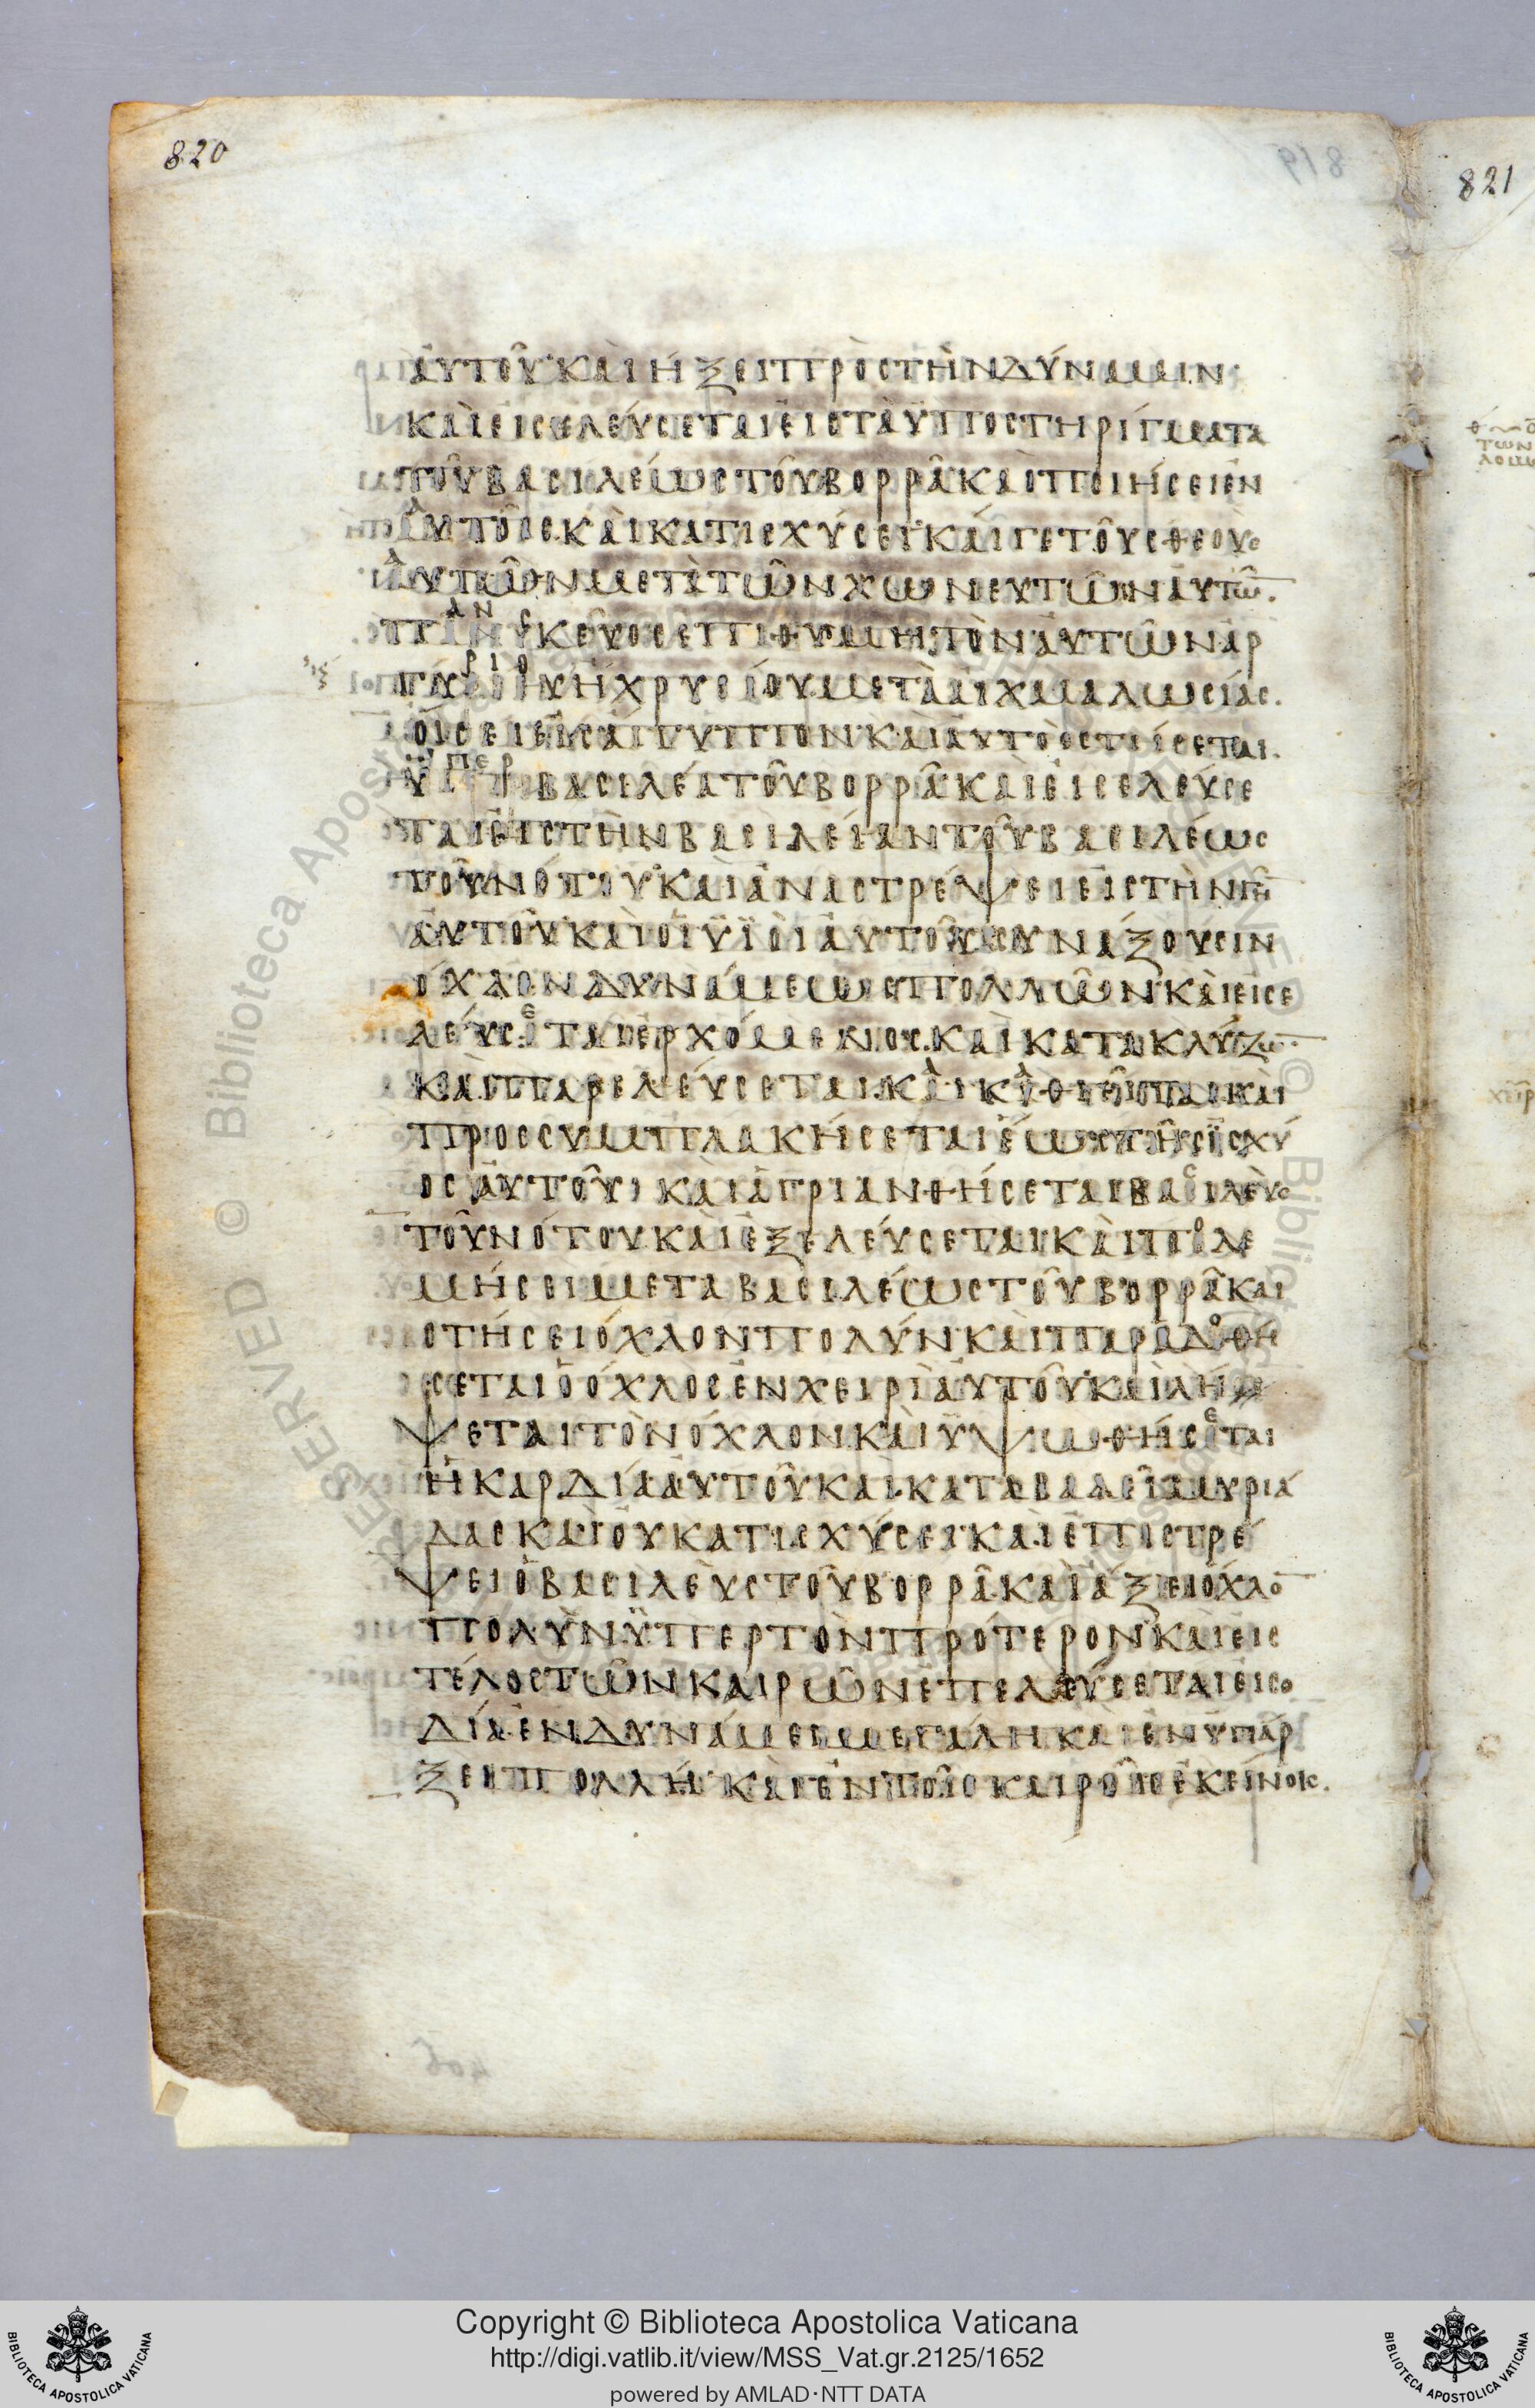 820
819
821
ἀυτοῦ· κὰι ἥξει πρὸς τὴν δύναμιν·
κὰι ἐισελέυσεται ἐις τὰ ϋποστηρίγματα
τοῦ βασιλέως τοῦ βορρᾶ κὰι ποιήσει ἐν
ἀυτοῖς. κὰι κατισχύσει· κάιγε τοὺς θεοὺς
ἀυτῶν μετὰ τῶν χωνευτῶν ἀυτῶ̅.
πᾶν σκεῦος ἐπιθυμητὸν ἀυτῶν ἀρ
γυρίου ἢ χρυσίου μετὰ ἀιχμαλωσίας.
ὄισει ἐις ἄιγυπτον· κὰι ἀυτὸς στήσεται.
ϋπὲρ βασιλέα τοῦ βορρᾶ· κὰι ἐισελέυσε
ται ἐις τὴν βασιλείαν τοῦ βασιλέως
τοῦ νότου· κὰι ἀναστρέψει ἐις τὴν γῆ̅
ἀυτοῦ· κὰι ὁι ϋϊὸι ἀυτοῦ συνάξουσιν
ὄχλον δυνάμεων πολλῶν· κὰι ἐισε
λέυσεται ἐρχόμενος. κὰι κατακλύζω̅
κὰι παρελέυσεται. κὰι κάθιεῖται. κὰι
προσσυμπλακήσεται ἕως τῆς ϊσχύ
ος ἀυτοῦ· κὰι ἀγριανθήσεται βασιλὲυς
τοῦ νότου· κὰι ἐξελέυσεται κὰι πολε
μήσει μετα βασιλέως τοῦ βορρᾶ· και
στήσει ὄχλον πολύν· κὰι παραδοθή
σεται ὁ ὄχλος ἐν χειρὶ ἀυτοῦ· κὰι λή
ψεται τὸν ὄχλον. κὰι ϋψωθήσεται
ἡ καρδία ἀυτοῦ· κὰι καταβαλεῖ μυριά
δας κὰι ὀυ κατισχύσει· κὰι ἐπιστρέ
ψει ὁ βασιλὲυς τοῦ βορρᾶ. κὰι ἄξει ὄχλο̅
πολὺν ϋπερ τὸν πρότερον· κὰι ἐις
τέλος τῶν καιρῶν ἐπελέυσεται ἐισο
δία ἐν δυνάμει μεγάλη κὰι ἐν ϋπάρ
ξει πολλῆ· κὰι ἐν τοῖς καιροῖς ἐκείνοις.
Copyright © Biblioteca Apostolica Vaticana
http://digi.vatlib.it/view/MSS_Vat.gr.2125/1652
powered by AMLAD·NTT DATA
BIBLIOTECA APOSTOLICA VATICANA
BIBLIOTECA APOSTOLICA VATICANA